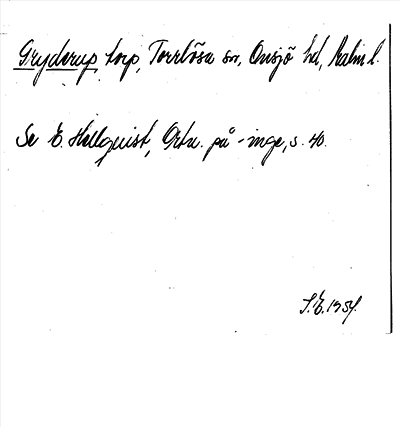 Gryderup, torp, Torrlösa sn, Onsjö hd, Malm. l.
Se E. Hellquist, Ortn. på -inge, s. 40.
S.E. 1954.